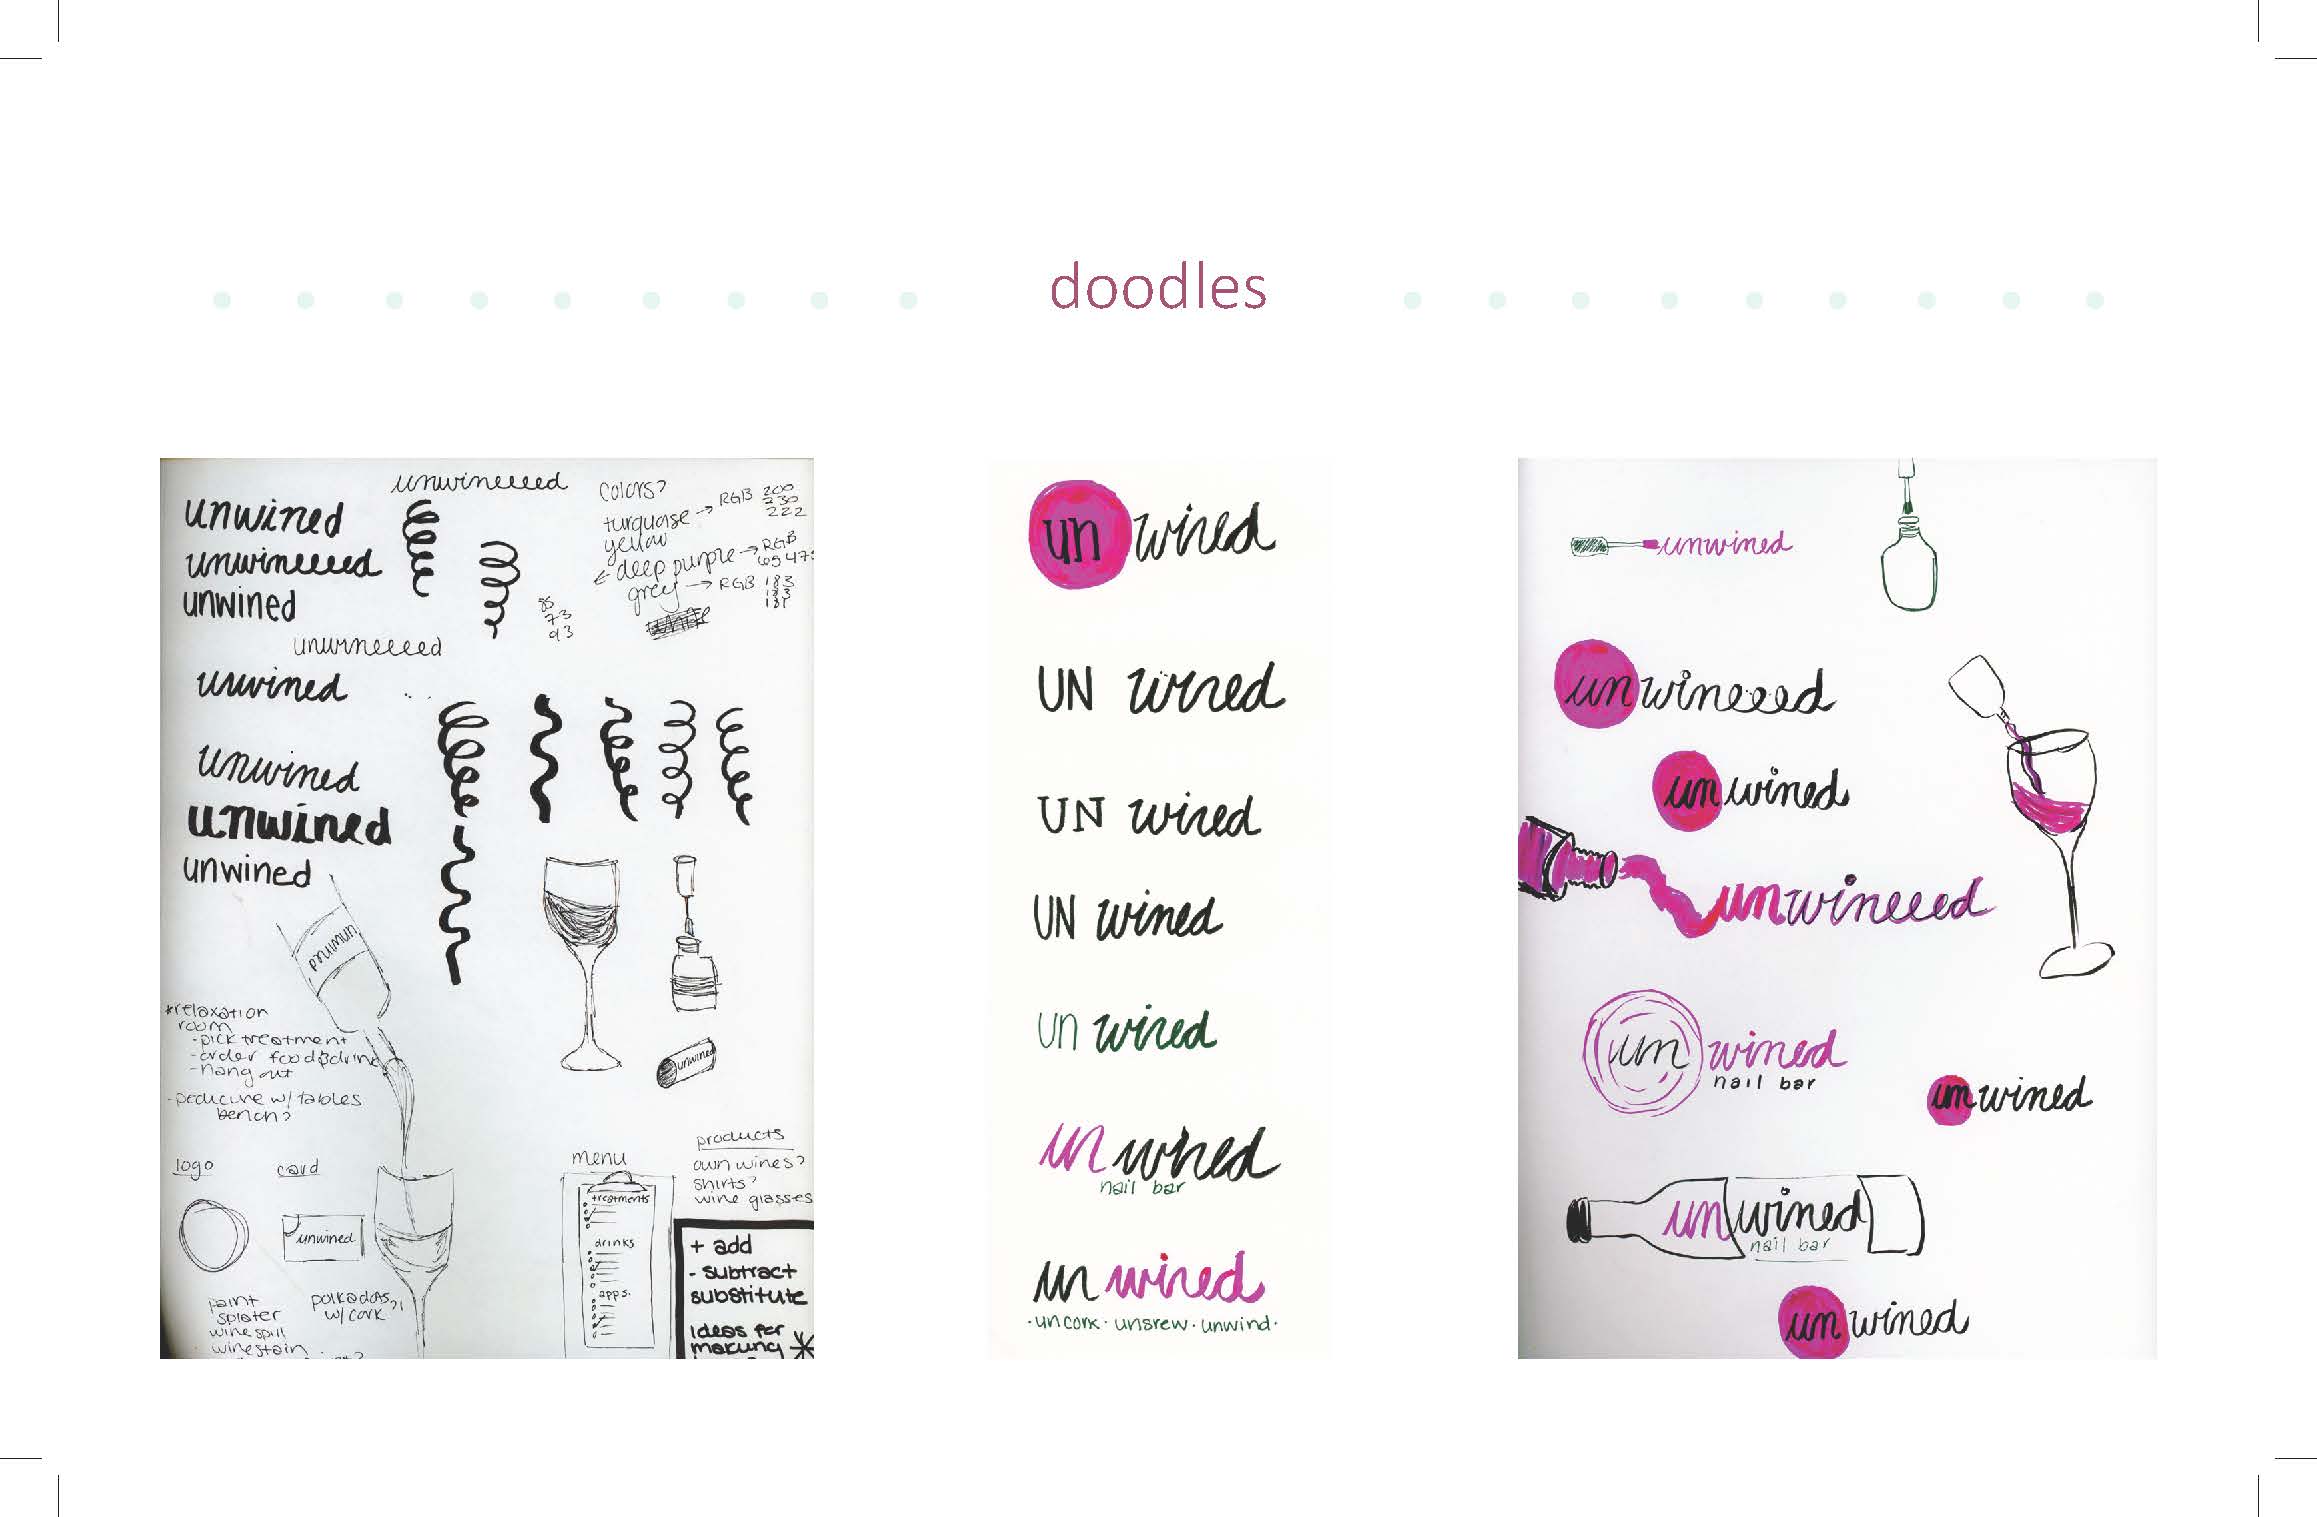 doodles
unwineeeed
unwined
unwineeeed
unwined
unwineeeed
unwined
unwined
unwined
unwined
Colors?
turquoise → RGB 200
230
222
yellow
deep purple → RGB
65 47
grey → RGB 183
183
73
93
unwined
unwined
*relaxation
room
-pick treatment
-order food & drink
-hang out
-pedicure w/ tables
bench?
logo
card
unwined
paint
splater
wine spill
wine stain
polkadots
w/ cork
menu
treatments
drinks
apps.
products
own wines?
shirts?
wine glasses
+ add
- subtract
substitute
ideas for
making
unwined
UN wined
UN wined
UN wined
un wined
un wined
nail bar
un wined
·uncork·unsrew·unwind·
unwined
unwineeed
unwined
unwineeed
un wined
nail bar
unwined
unwined
nail bar
unwined